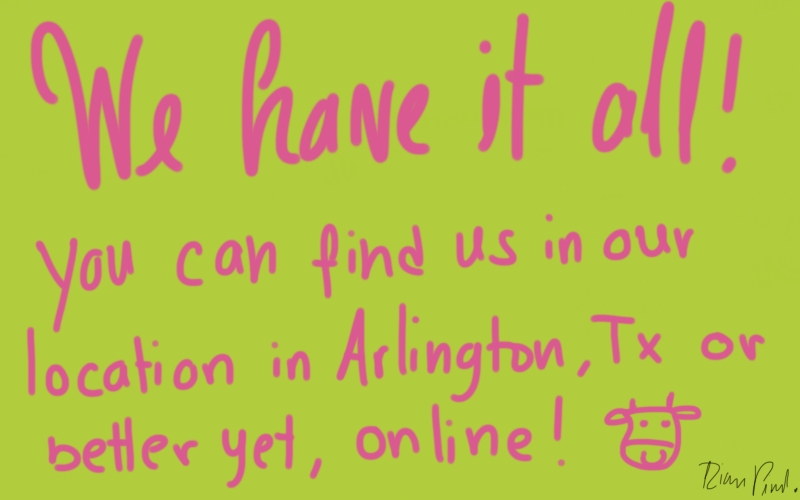 We have it all!
You can find us in our
location in Arlington, Tx or
better yet, online!